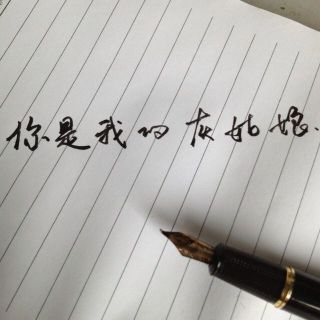 你是我的灰姑娘.